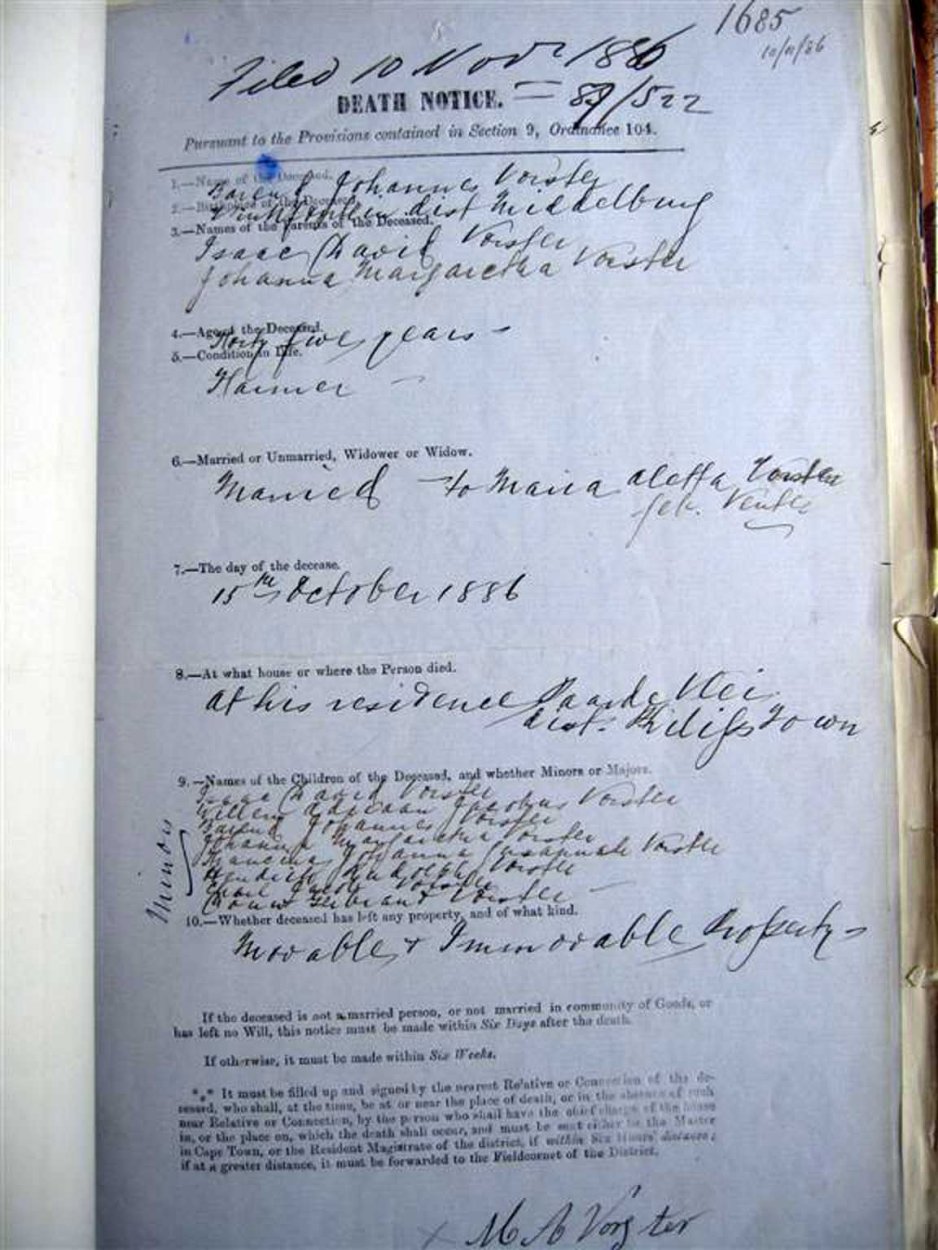 1685
10/11/86
Filed 10 Novr 1886
DEATH NOTICE. = 89/522
Pursuant to the Provisions contained in Section 9, Ordinance 104.
1.—Name of the Deceased.
Barend Johannes Vorster
2.—Birthplace of the Deceased.
dist Middelburg
3.—Names of the Parents of the Deceased.
Isaac David Vorster
Johanna Margaretha Vorster
4.—Age of the Deceased.
Forty five years -
5.—Condition in Life.
Farmer -
6.—Married or Unmarried, Widower or Widow.
Married - to Maria Aletta Vorster
geb. Venter
7.—The day of the decease.
15th October 1886
8.—At what house or where the Person died.
At his residence Paarde Vlei
dist. Philipstown
9.—Names of the Children of the Deceased, and whether Minors or Majors.
Isaac David Vorster
Willem Adriaan Jacobus Vorster
Barend Johannes Vorster
Johanna Margaretha Vorster
Francina Johanna Susannah Vorster
Hendrik Rudolph Vorster
Carel Jacob Vorster
Vorster
Minors
10.—Whether deceased has left any property, and of what kind.
Movable & Immovable Property -
If the deceased is not a married person, or not married in community of Goods, or
has left no Will, this notice must be made within Six Days after the death.
If otherwise, it must be made within Six Weeks.
*** It must be filled up and signed by the nearest Relative or Connection of the de-
ceased, who shall, at the time, be at or near the place of death, or in the absence of such
near Relative or Connection, by the person who shall have the chief charge of the house
in, or the place on, which the death shall occur, and must be sent either to the Master
in Cape Town, or the Resident Magistrate of the district, if within Six Hours' distance;
if at a greater distance, it must be forwarded to the Fieldcornet of the District.
x M A Vorster